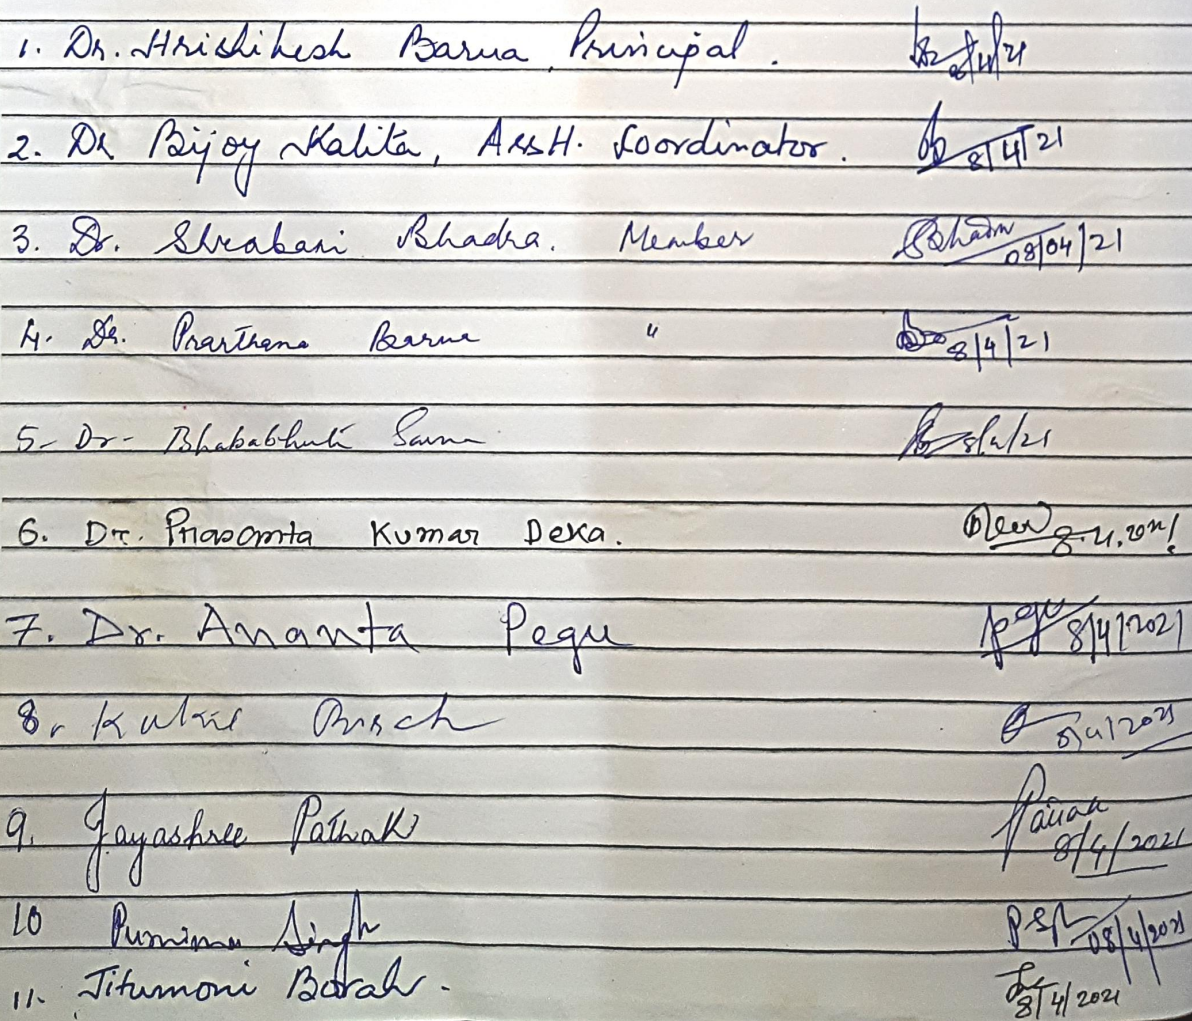 1. Dr. Hrishikesh Barua, Principal. 8/4/21
2. Dr Bijoy Kalita, Asstt. Coordinator. 8/4/21
3. Dr. Shrabani Bhadra. Member Bhadra 08/04/21
4. Dr. Prarthana Barua " 8/4/21
5. Dr. Bhababhuti Sarma 8/4/21
6. Dr. Prasanta Kumar Deka. 8.4.2021
7. Dr. Ananta Pegu Pegu 8/4/2021
8. 8/4/2021
9. Jayashree Pathak 8/4/2021
10 Purnima Singh 08/4/2021
11. Jitumoni Borah. 8/4/2021